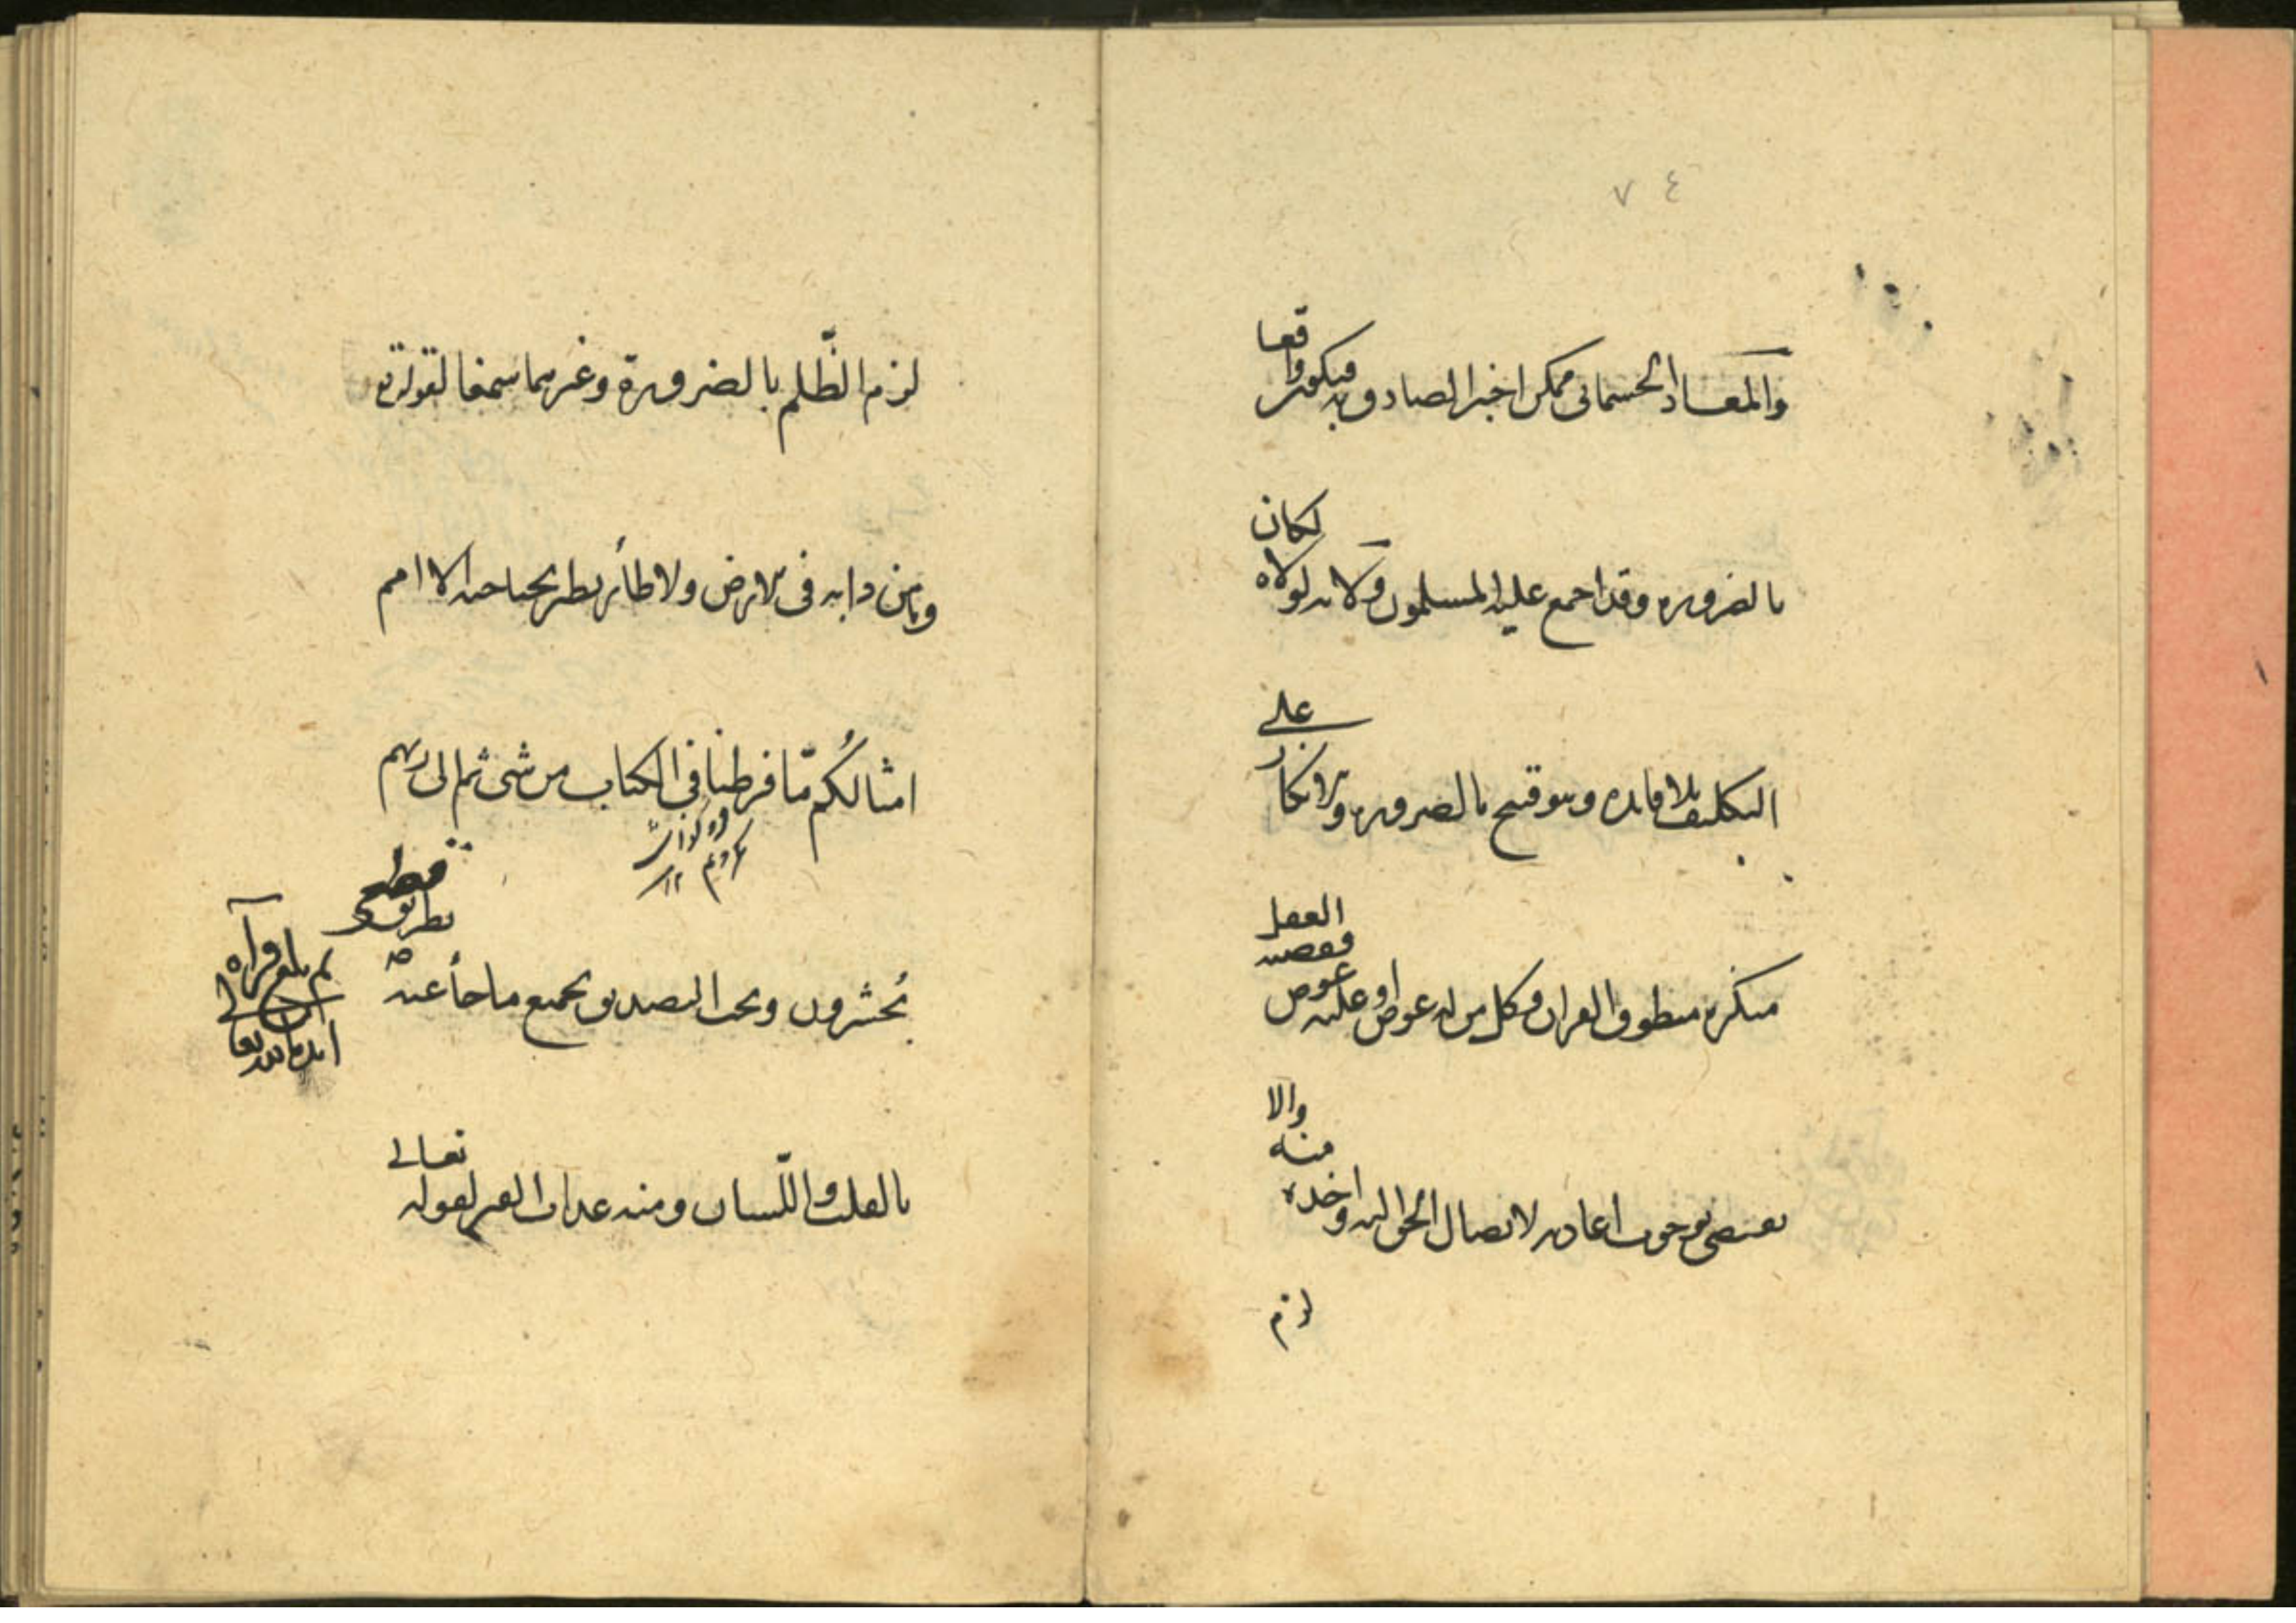 ٧٤
والمعاد الجسمانى ممكن اخبر الصادق به فيكون واقعا
بالضروره وقد اجمع عليه المسلمون ولانه لولاه لكان
التكليف بلا فايده وهو قبيح بالضروره ولانكار على
منكره منطوق القران وكل من له عوض او عليه عوض فقضيه العقل
تقتضى بوجوب اعادته لاتصال الحق اليه واخذه منه والا
لزم
لزم الظّلم بالضرورة وغيرهما سمعا لقوله تع
وما من دابه فى الارض ولا طائر يطير بجناحيه الا امم
امثالكُم مّا فرطنا فى الكتاب من شى ثم الى ربهم
يُحشرون ويجب التصديق بجميع ما جاَ عنه صه بطريق قطعى
بلغ قرآه
ايده الله تعا
بالقلب واللّسان ومنه عذاب القبر لقوله تعالى